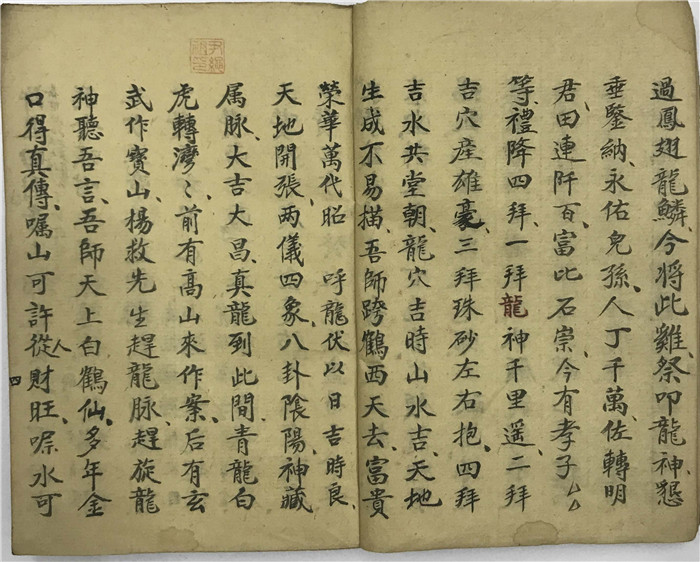 過鳳翅龍鱗、今將此雞祭叩龍神、懇
垂鑒納、永佑兒孫、人丁千萬、佐轉明
君、田連阡百、富比石崇、今有孝子ㄙㄙ
等、禮降四拜、一拜龍神千里遥、二拜
吉穴産雄豪、三拜珠砂左右抱、四拜
吉水共堂朝、龍穴吉時山水吉、天地
生成不易描、吾師跨鶴西天去、富貴
榮華萬代昭 呼龍伏以日吉時良、
天地開張、两儀四象、八卦陰陽、神藏
属脉、大吉大昌、真龍到此間、青龍白
虎轉灣〻前有髙山來作案、后有玄
武作寳山、楊救先生趕龍脉、趕旋龍
神聽吾言、吾師天上白鶴仙、多年金
口得真傳、嘱山可許從人財旺、嘱水可
四